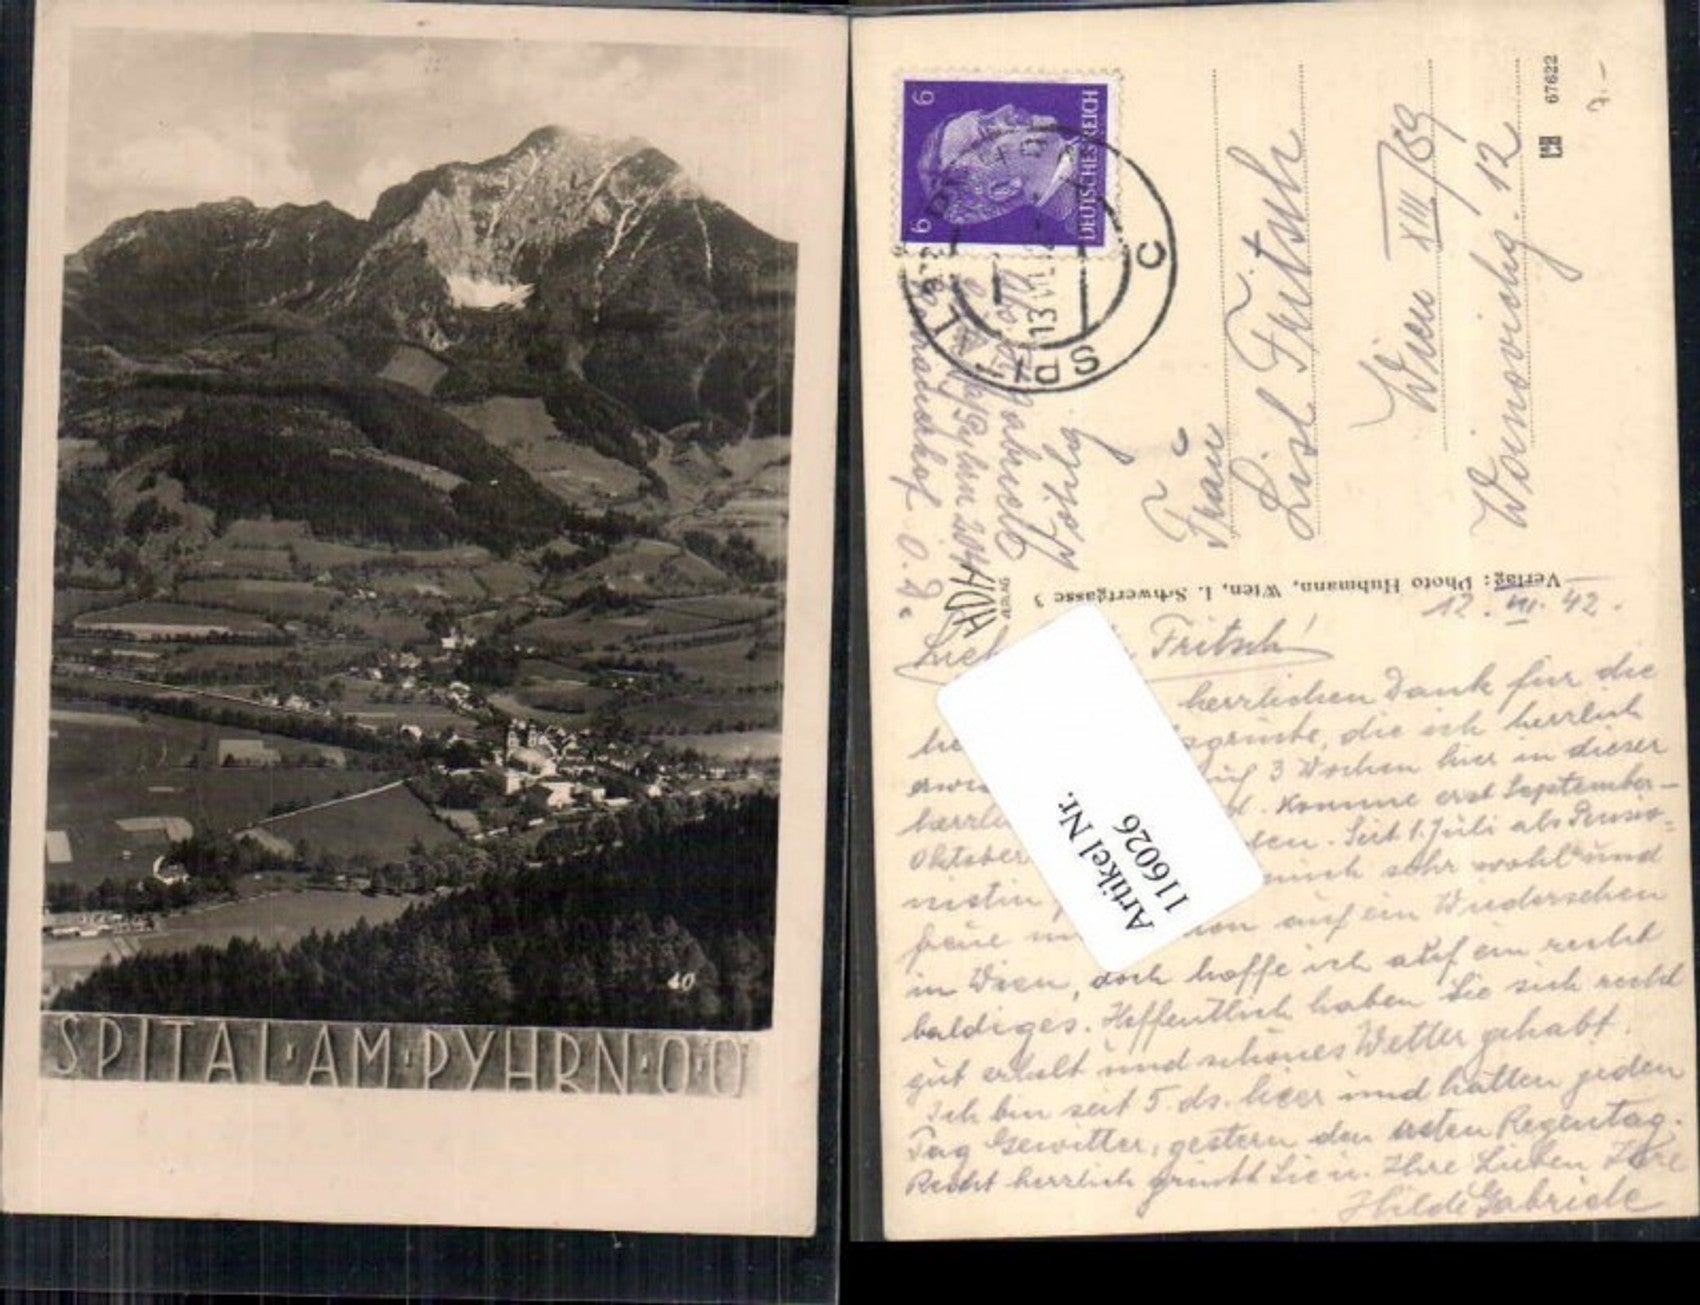 40
SPITAL·AM·PYHRN·O·Ö
6
6
DEUTSCHES REICH
SPITAL
13.VII.
c
67622
7.-
Frau
Lisl Fritsch
Wien XIII/89
12
Abs. Gabriele
Wöhly
Pyhrn
O.D.
HDH
VERLAG
Verlag: Photo Huhmann, Wien, I. Schwertgasse 3
12. VII. 42.
Fritsch!
herzlichen Dank für die
die ich herzlich
3 Wochen hier in dieser
Komme erst September-
Oktober Seit 1. Juli als Pensio=
nistin mich sehr wohl und
auf ein Wiedersehen
in Wien, doch hoffe ich auf ein recht
baldiges. Hoffentlich haben Sie sich recht
gut erholt und schönes Wetter gehabt.
Ich bin seit 5. ds. hier und hatten jeden
Tag Gewitter, gestern den ersten Regentag.
Recht herzlich grüsst Sie u. Ihre Lieben Ihre
Hilde Gabriele
Artikel Nr.
116026